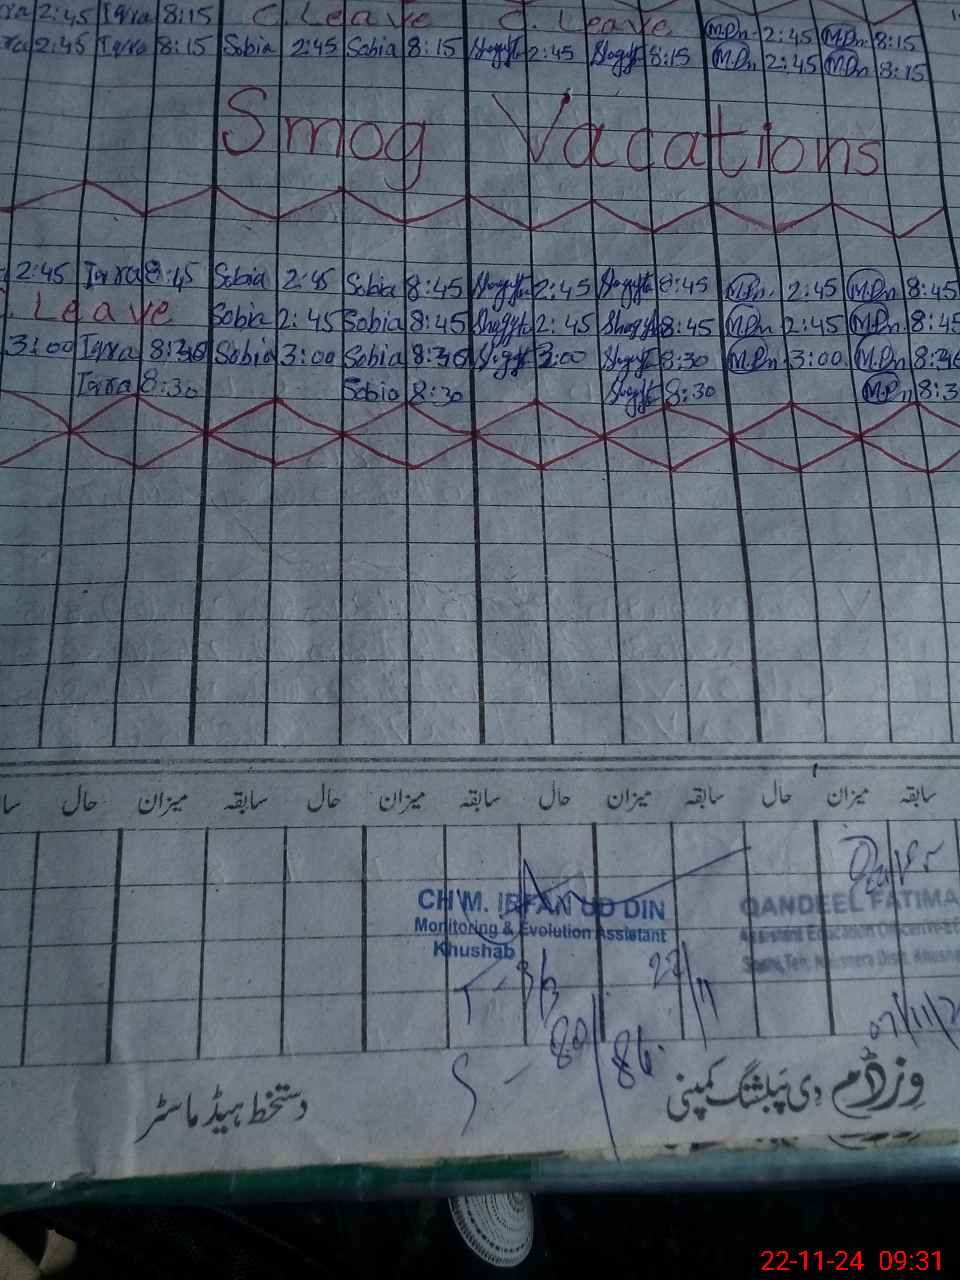 2:45 Iqra 8:15 C. Leave C. Leave M.Dn 2:45 M.Dn 8:15
2:45 Iqra 8:15 Sobia 2:45 Sobia 8:15 Shagyft 2:45 Shagyft 8:15 M.Dn 2:45 M.Dn 8:15
Smog Vacations
2:45 Iqra 8:45 Sobia 2:45 Sobia 8:45 Shagyft 2:45 Shagyft 8:45 M.Dn. 2:45 M.Dn 8:45
Leave Sobia 2:45 Sobia 8:45 Shagyft 2:45 Shagyft 8:45 M.Dn 2:45 M.Dn. 8:45
3:00 Iqra 8:30 Sobia 3:00 Sobia 8:30 Shagyft 3:00 Shagyft 8:30 M.Dn 3:00 M.Dn 8:30
Iqra 8:30 Sobia 8:30 Shagyft 8:30 M.Dn 8:3
حال میزان سابقہ حال میزان سابقہ حال میزان سابقہ حال میزان سابقہ
CH M. IRFAN UD DIN
Monitoring & Evolution Assistant
Khushab
QANDEEL FATIMA
Assistant Education Officer
T - 36 22/11
S - 80/86
07/11/2
دستخط ہیڈ ماسٹر
وزڈم دی پبلشنگ کمپنی
22-11-24 09:31